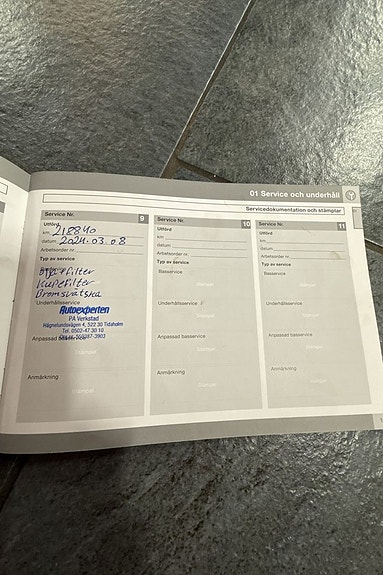 01 Service och underhåll
Servicedokumentation och stämplar
Service Nr. 9
Utförd
km 218840
datum 2024.03.08
Arbetsorder nr.
Typ av service
filter
Kupefilter
Bromsvätska
Underhållsservice
Autoexperten
PA Verkstad
Hägnelundsvägen 4, 522 30 Tidaholm
Tel. 0502-47 30 10
Anpassad basservice
Stämpel
Anmärkning
Service Nr. 10
Utförd
km
datum
Arbetsorder nr.
Typ av service
Basservice
Stämpel
Underhållsservice
Stämpel
Anpassad basservice
Stämpel
Anmärkning
Stämpel
Service Nr. 11
Utförd
km
datum
Arbetsorder nr.
Typ av service
Basservice
Stämpel
Underhållsservice
Stämpel
Anpassad basservice
Stämpel
Anmärkning
Stämpel